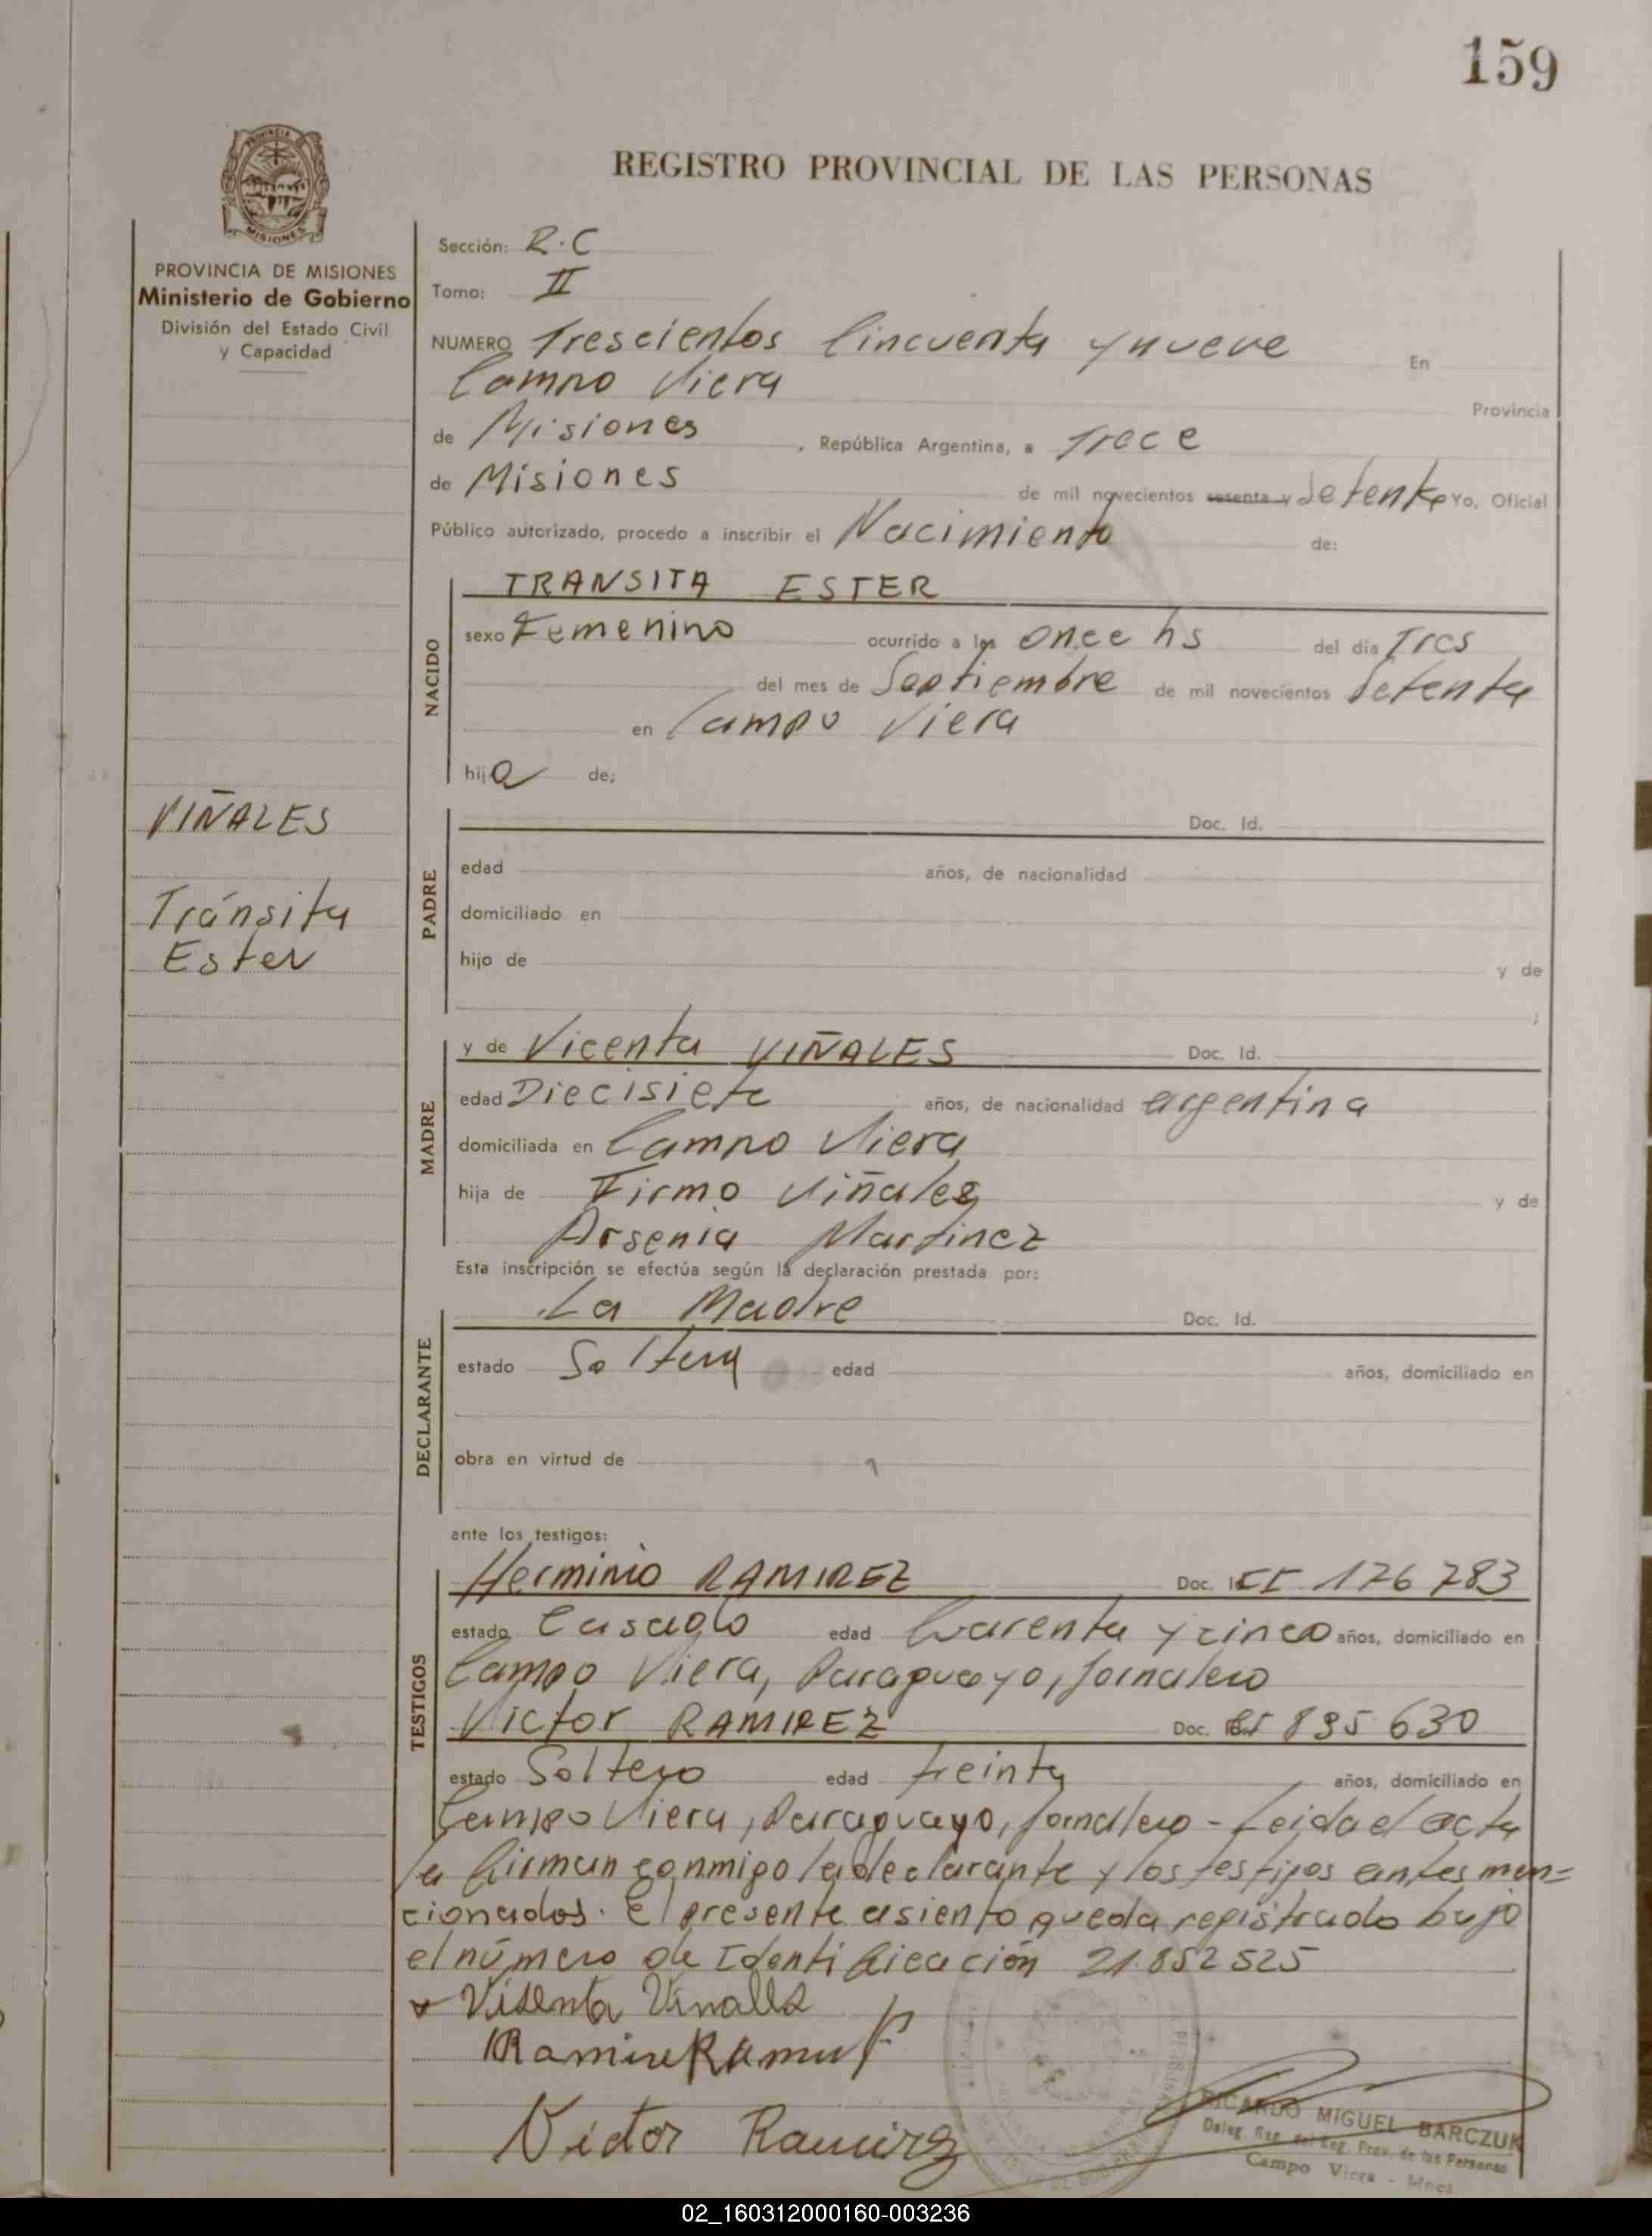 159
PROVINCIA
MISIONES
REGISTRO PROVINCIAL DE LAS PERSONAS
PROVINCIA DE MISIONES
Ministerio de Gobierno
División del Estado Civil
y Capacidad
Sección: R.C
Tomo: II
NUMERO Trescientos Cincuenta y nueve En
Campo Viera Provincia
de Misiones, República Argentina, a Trece
de Misiones de mil novecientos sesenta y Setenta Yo, Oficial
Público autorizado, procedo a inscribir el Nacimiento de:
NACIDO
TRANSITA ESTER
sexo Femenino ocurrido a las once hs del día Tres
del mes de Septiembre de mil novecientos Setenta
en Campo Viera
hija de;
VIÑALES
Tránsita
Ester
PADRE
Doc. Id.
edad años, de nacionalidad
domiciliado en
hijo de y de
;
MADRE
y de Vicenta VIÑALES Doc. Id.
edad Diecisiete años, de nacionalidad argentina
domiciliada en Campo Viera
hija de Firmo Viñales y de
Arsenia Martinez
Esta inscripción se efectúa según la declaración prestada por:
DECLARANTE
La Madre Doc. Id.
estado Soltera edad años, domiciliado en
obra en virtud de
ante los testigos:
TESTIGOS
Herminio RAMIREZ Doc. 176 783
estado Casado edad Cuarenta y cinco años, domiciliado en
Campo Viera, Paraguayo, Jornalero
Victor RAMIREZ Doc. 895 630
estado Soltero edad treinta años, domiciliado en
Campo Viera, Paraguayo, Jornalero - Leida el acta
la firman conmigo la declarante y los testigos antes men=
cionados. El presente asiento queda registrado bajo
el número de Identificación 21.852 525
Visenta Vinales
Victor Ramirez
RICARDO MIGUEL BARCZUK
Deleg. Rsp. del Reg. Prov. de las Personas
Campo Viera - Mnes
02_160312000160-003236